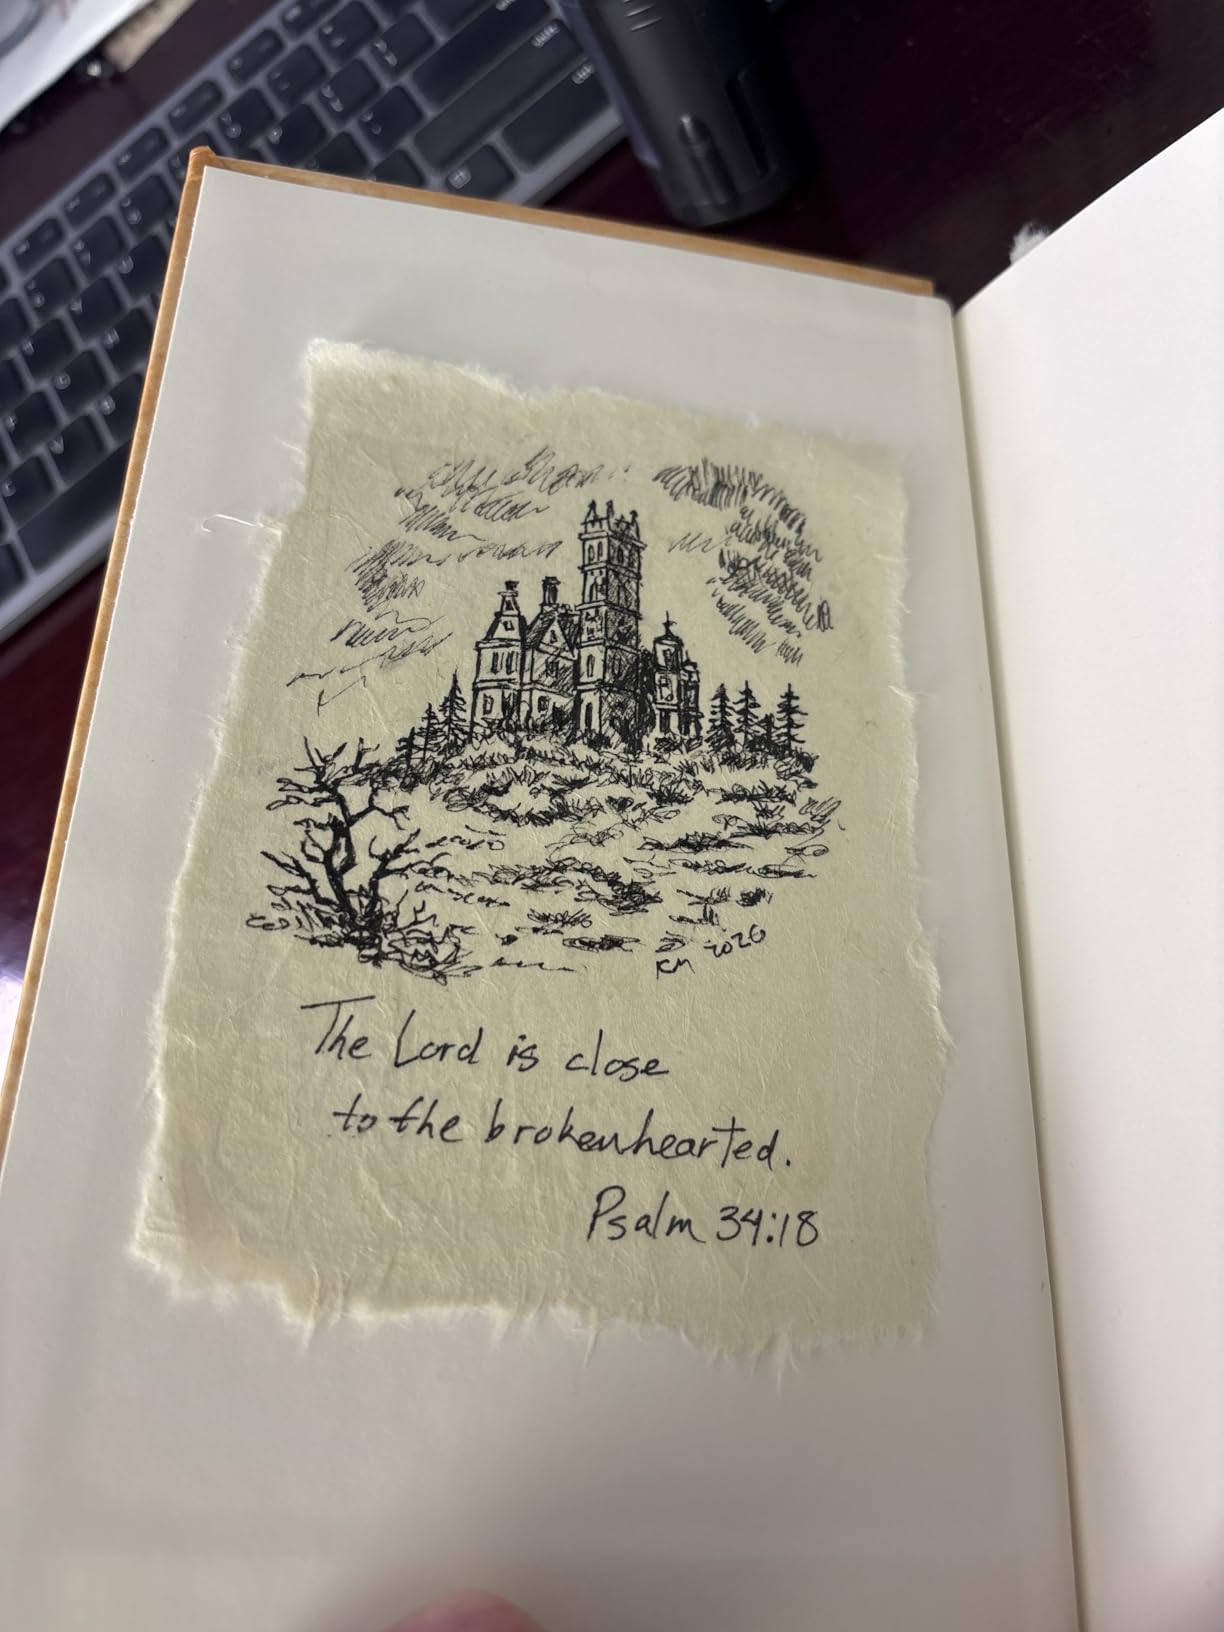 KM 2026
The Lord is close
to the brokenhearted.
Psalm 34:18